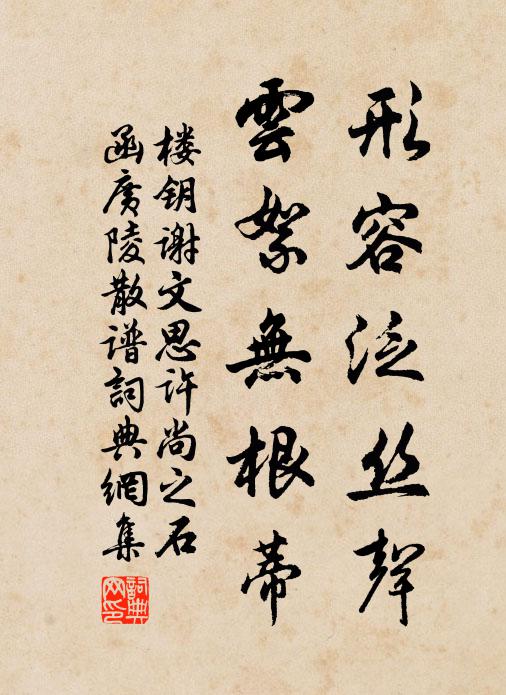 形容泛丝聲
雲絮無根蒂
楼钥谢文思许尚之石
函廣陵散谱詞典網集
詞典网印